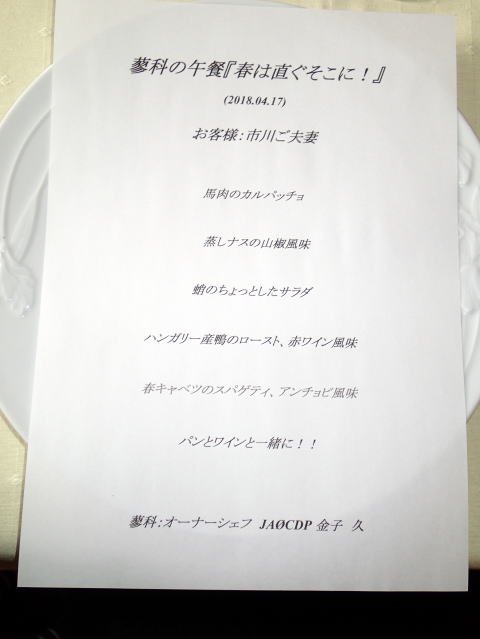 蓼科の午餐『春は直ぐそこに！』
(2018.04.17)
お客様：市川ご夫妻
馬肉のカルパッチョ
蒸しナスの山椒風味
蛸のちょっとしたサラダ
ハンガリー産鴨のロースト、赤ワイン風味
春キャベツのスパゲティ、アンチョビ風味
パンとワインと一緒に！！
蓼科：オーナーシェフ　JAØCDP 金子　久